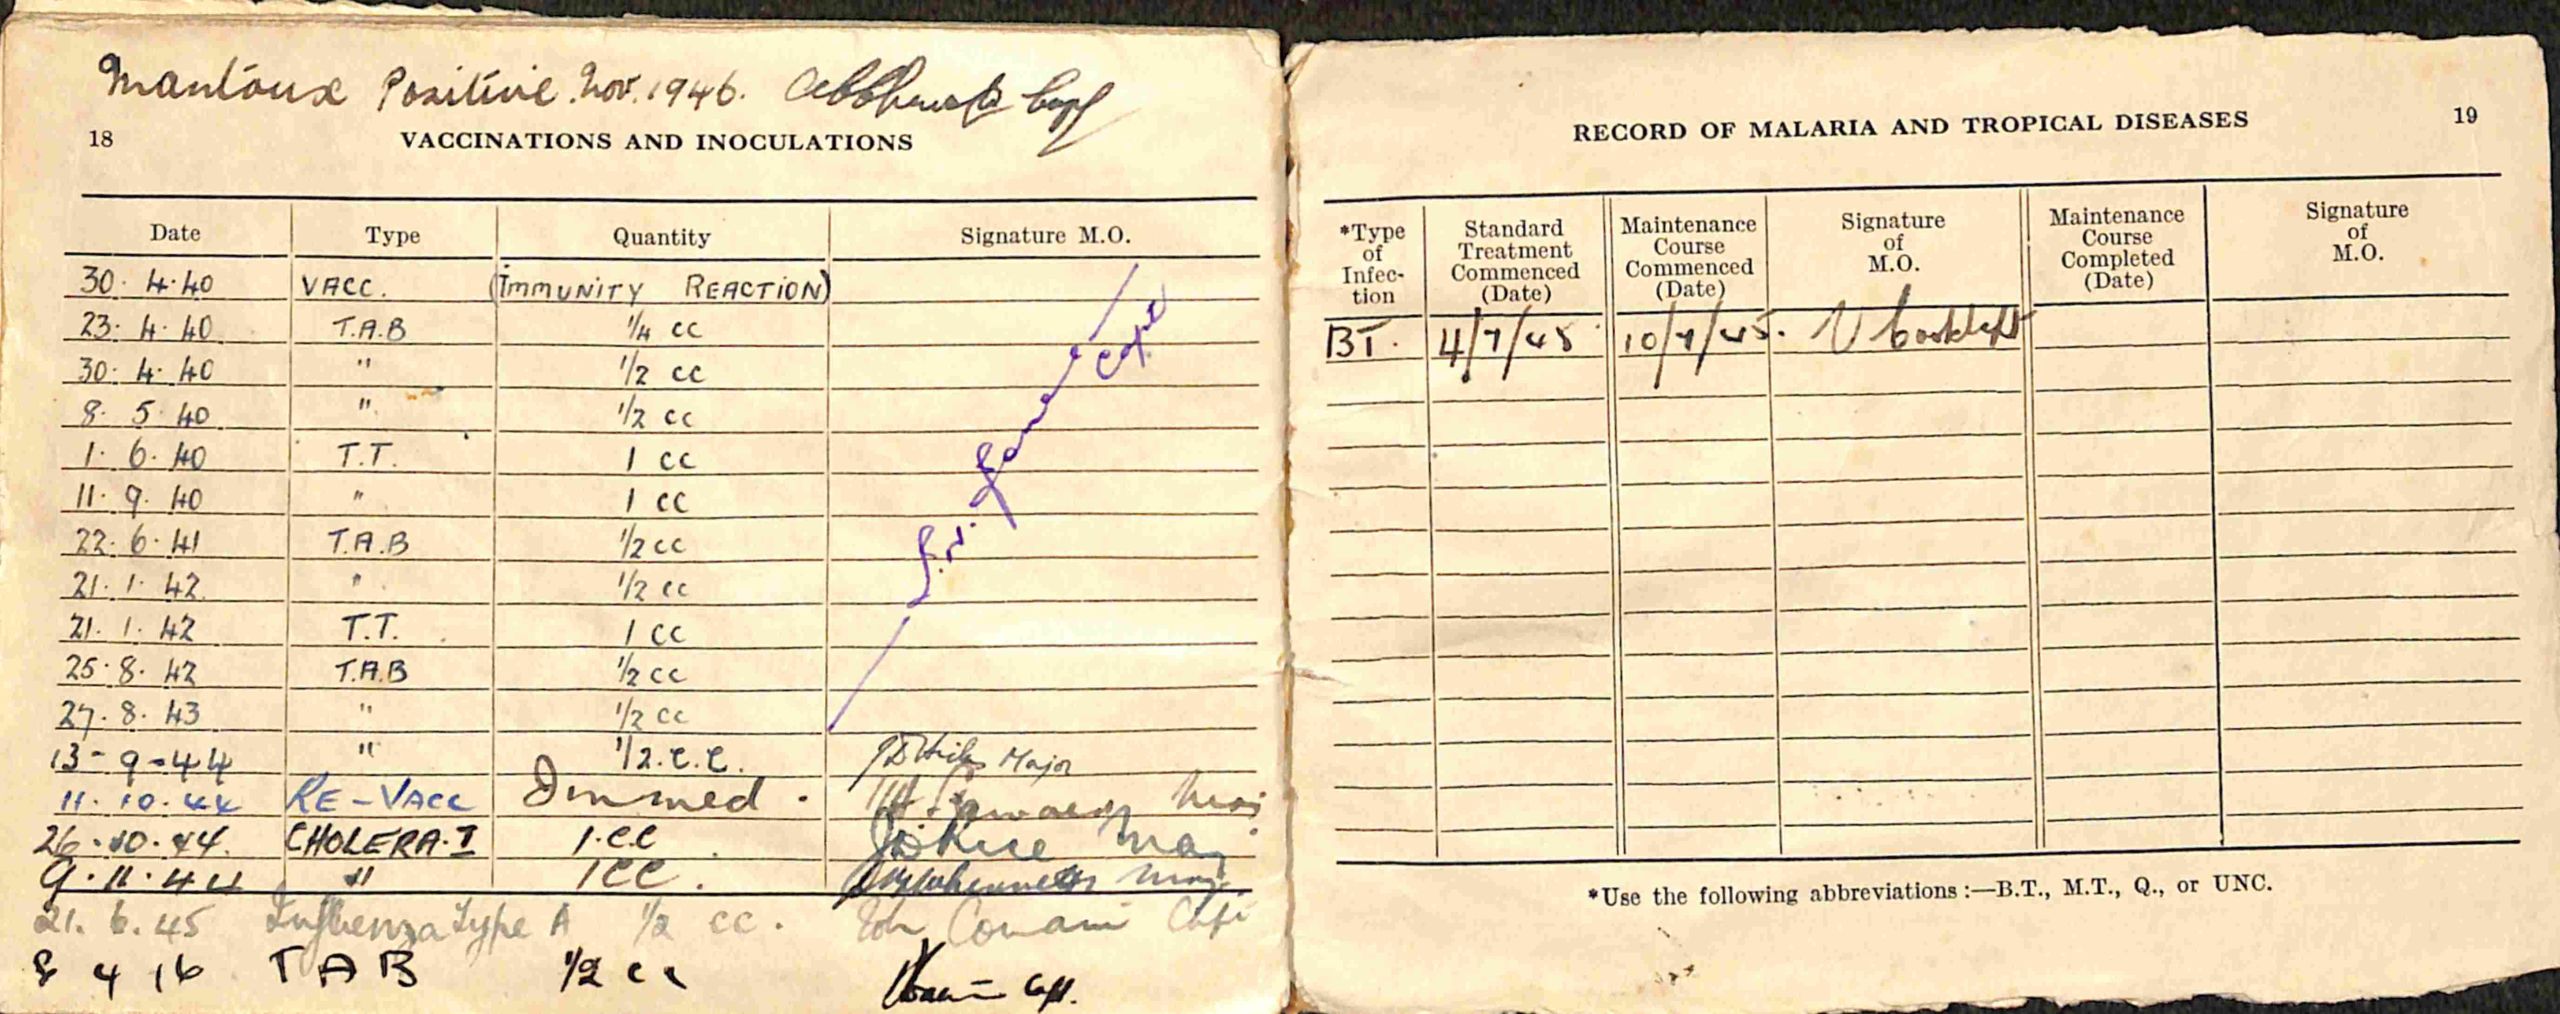 Mantoux Positive. Nov. 1946. Capt
18
VACCINATIONS AND INOCULATIONS
Date Type Quantity Signature M.O.
30. 4. 40 VACC. (IMMUNITY REACTION)
23. 4. 40 T.A.B 1/4 cc
30. 4. 40 " 1/2 cc
8. 5. 40 " 1/2 cc
1. 6. 40 T.T. 1 cc
11. 9. 40 " 1 cc
22. 6. 41 T.A.B 1/2 cc
21. 1. 42 " 1/2 cc
21. 1. 42 T.T. 1 cc
25. 8. 42 T.A.B 1/2 cc
27. 8. 43 " 1/2 cc
Capt
13-9-44 " 1/2.C.C. Major
11. 10. 44 RE-VACC Immed. Maj
26. 10. 44. CHOLERA. I 1.CC Maj
9. 11. 44 " 1CC. Maj.
21. 6. 45 Influenza Type A 1/2 cc. Capt
8 4 46 T A B 1/2 cc Capt.
19
RECORD OF MALARIA AND TROPICAL DISEASES
*Type of Infec-tion Standard Treatment Commenced (Date) Maintenance Course Commenced (Date) Signature of M.O. Maintenance Course Completed (Date) Signature of M.O.
BT. 4/7/45 10/7/45.
*Use the following abbreviations:—B.T., M.T., Q., or UNC.